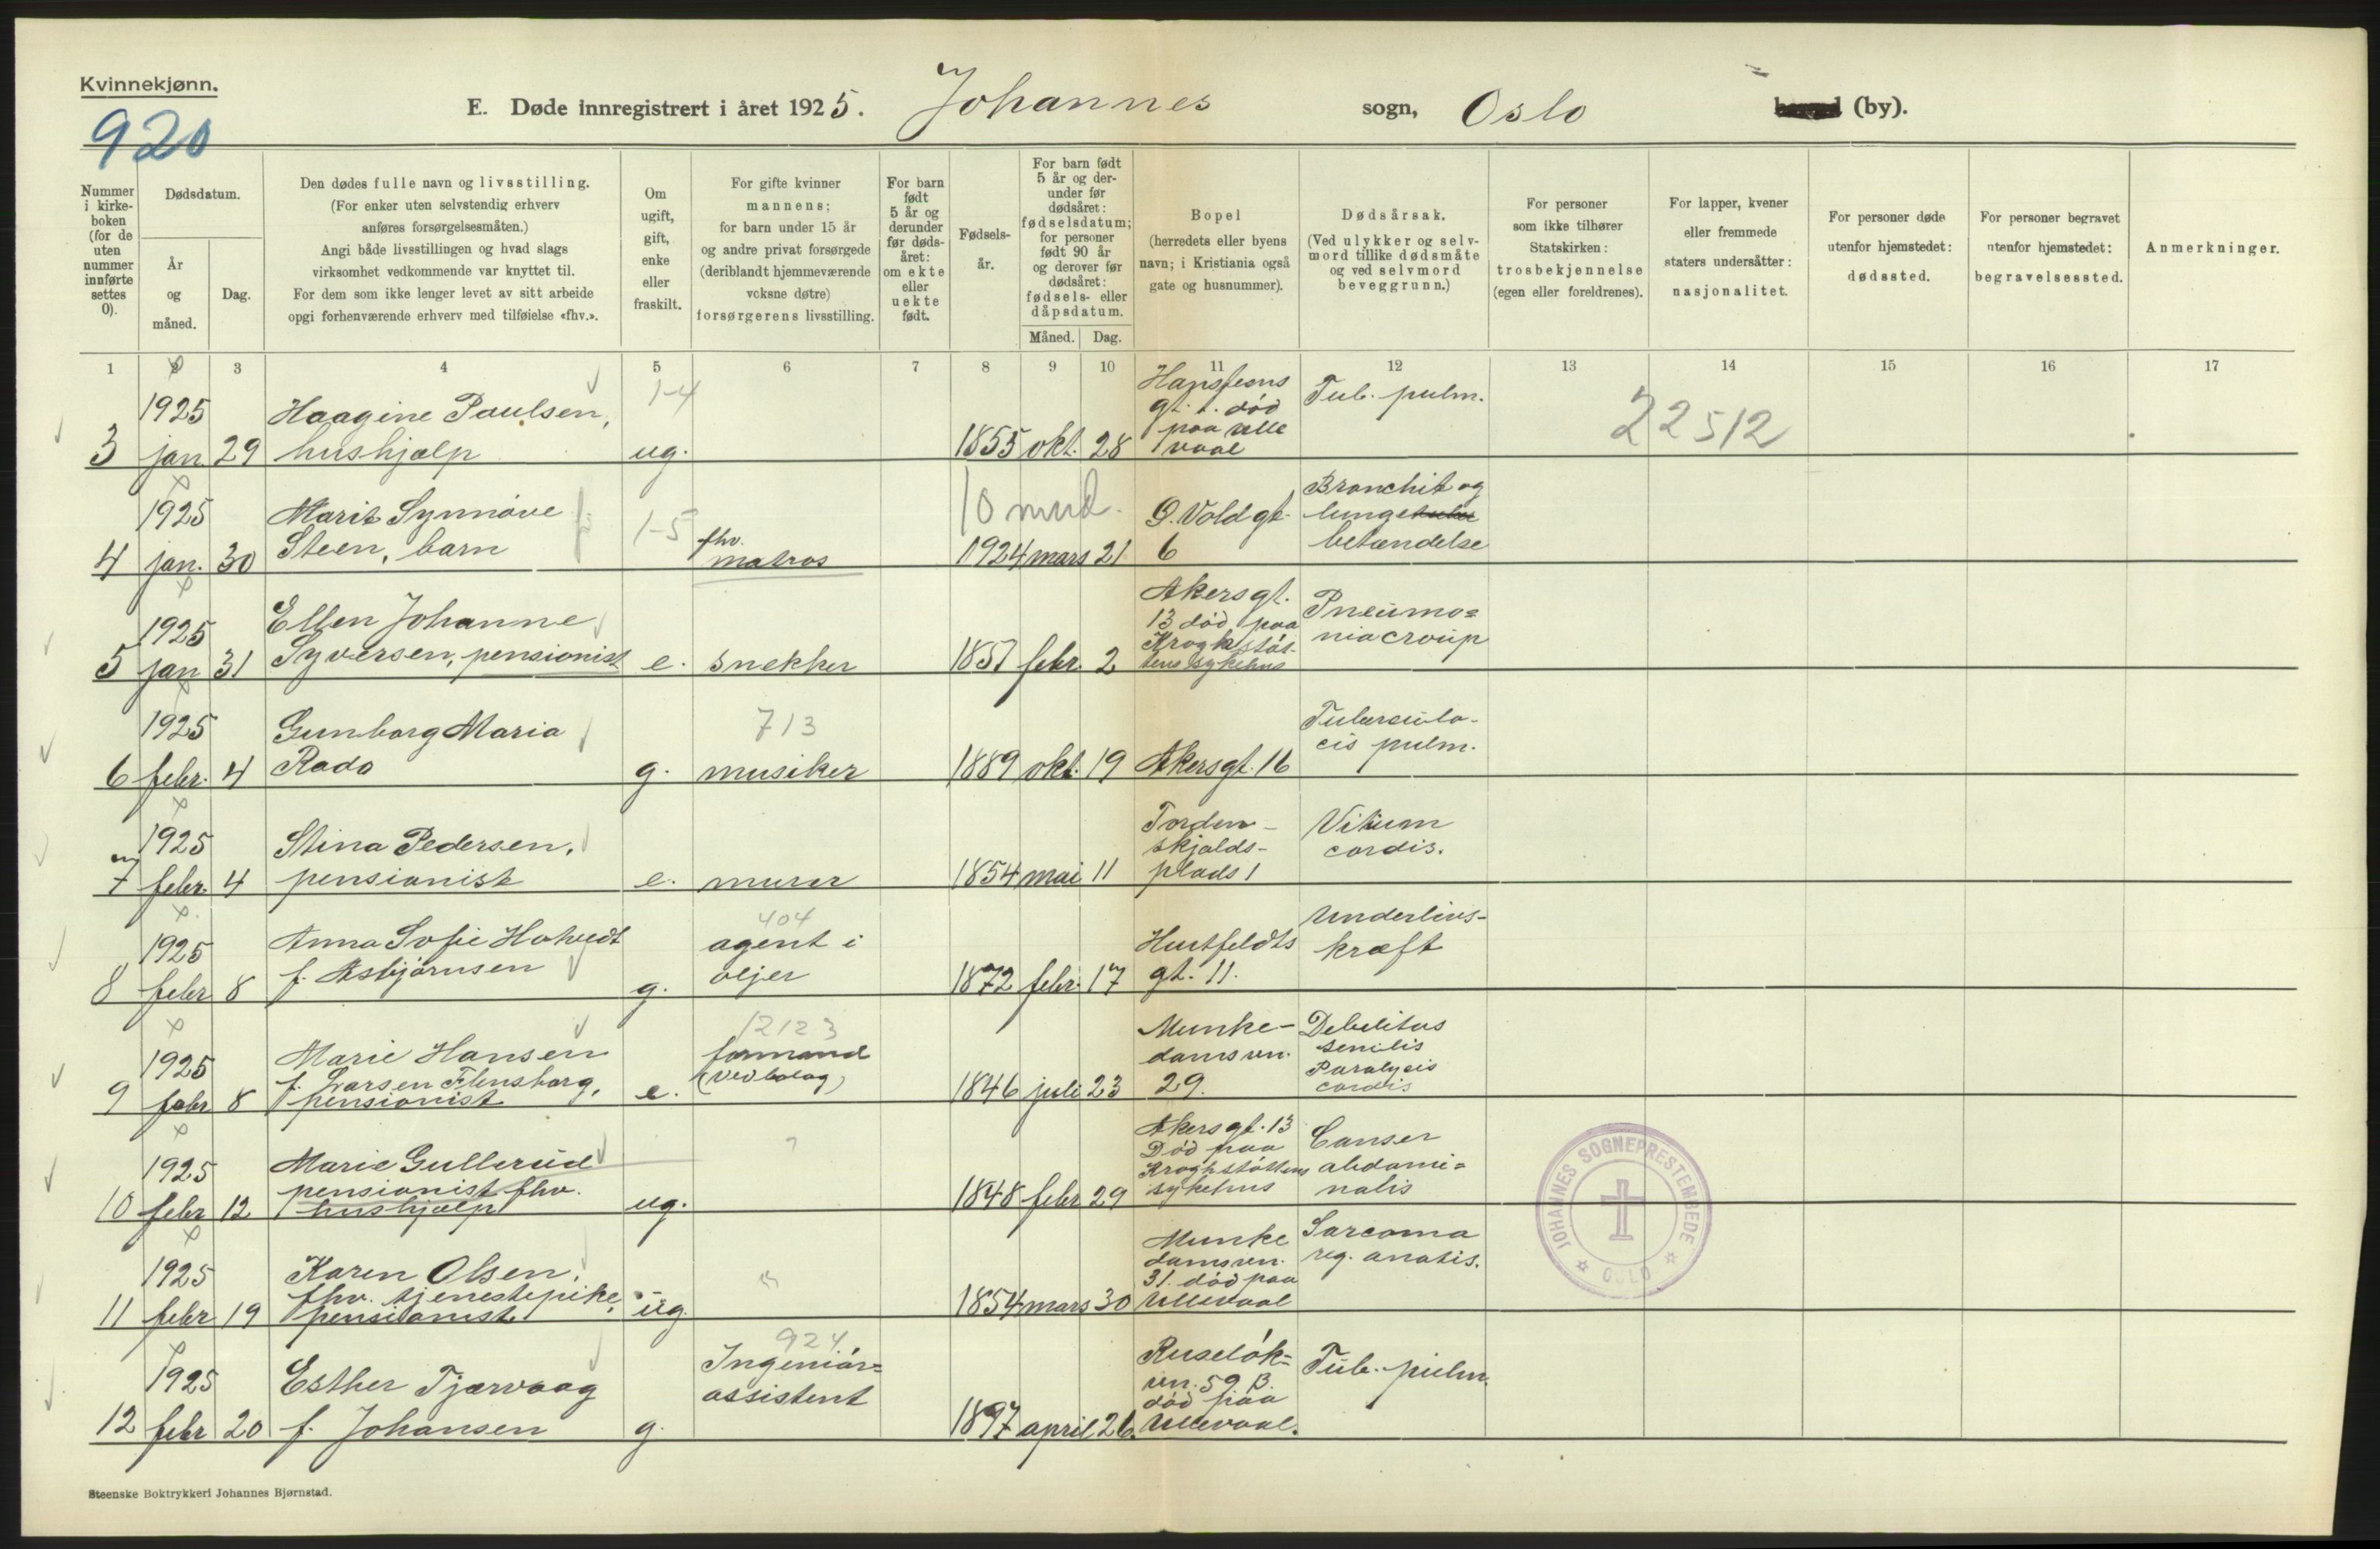 Kvinnekjønn.
920
E. Døde innregistrert i året 1925. Johannes sogn, Oslo (by).
Nummer i kirke-boken (for de uten nummer innførte settes 0).
Dødsdatum.
År og måned.
Dag.
Den dødes fulle navn og livsstilling.
(For enker uten selvstendig erhverv
anføres forsørgelsesmåten.)
Angi både livsstillingen og hvad slags
virksomhet vedkommende var knyttet til.
For dem som ikke lenger levet av sitt arbeide
opgi forhenværende erhverv med tilføielse «fhv.».
Om ugift, gift, enke eller fraskilt.
For gifte kvinner
mannens;
for barn under 15 år
og andre privat forsørgede
(deriblandt hjemmeværende
voksne døtre)
forsørgerens livsstilling.
For barn født 5 år og derunder før døds-året: om ekte eller uekte født.
Fødsels-år.
For barn født 5 år og der-under før dødsåret: fødselsdatum; for personer født 90 år og derover før dødsåret: fødsels- eller dåpsdatum.
Måned. Dag.
Bopel
(herredets eller byens
navn; i Kristiania også
gate og husnummer).
Dødsårsak.
(Ved ulykker og selv-
mord tillike dødsmåte
og ved selvmord
beveggrunn.)
For personer
som ikke tilhører
Statskirken:
trosbekjennelse
(egen eller foreldrenes).
For lapper, kvener
eller fremmede
staters undersåtter:
nasjonalitet.
For personer døde
utenfor hjemstedet:
dødssted.
For personer begravet
utenfor hjemstedet:
begravelsessted.
Anmerkninger.
1 2 3 4 5 6 7 8 9 10 11 12 13 14 15 16 17
3 1925 jan. 29 Haagine Paulsen, hushjælp 1-4 ug. 1855 okt. 28 gt. 1. død paa Ulle vaal Tub. pulm. 22512
4 1925 jan. 30 Marit Synnøve Steen, barn 1-5 fhv. matros 10 mnd. 1924 mars 21 O. Voldgt. 6 Bronchit og lunge betændelse
5 1925 jan 31 Ellen Johanne Syversen, pensionist e. snekker 1857 febr. 2 Akersgt. 13 død paa Kroghstøt-tens sykehus Pneumo= nia croup
6 1925 febr. 4 Gunborg Maria Rado g. 713 musiker 1889 okt. 19 Akersgt. 16 Tuberculo-cis pulm.
7 1925 febr. 4 Stina Pedersen, pensionist e. murer 1854 mai 11 Torden-skjolds-plads 1 Vitium cordis.
8 1925 febr 8 Anna Sofie Hotvedt f. Asbjørnsen g. 404 agent i oljer 1872 febr. 17 Huitfeldts gt. 11. Underlivs-kræft
9 1925 febr 8 Marie Hansen f. Larsen Flensborg, pensionist e. 12123 formand (Vedbolag) 1846 juli 23 Munke-damsven. 29. Debilitas senilis Paralysis cordis
10 1925 febr 12 Marie Gullerud pensionist fhv. hushjælp ug. ? 1848 febr 29 Akersgt. 13 Død paa Kroghstøttens sykehus Canser abdomi= nalis
11 1925 febr 19 Karen Olsen, fhv. tjenestepike, pensionist. ug. 1854 mars 30 Munke damsven. 31. død paa Ullevaal Sarcoma reg. anatis.
12 1925 febr 20 Esther Tjærvaag f. Johansen g. 924 Ingeniør= assistent 1897 april 26. Ruseløk= ven. 59 B. død paa Ullevaal. Tub. pulm.
JOHANNES SOGNEPRESTEMBEDE OSLO
Steenske Boktrykkeri Johannes Bjørnstad.